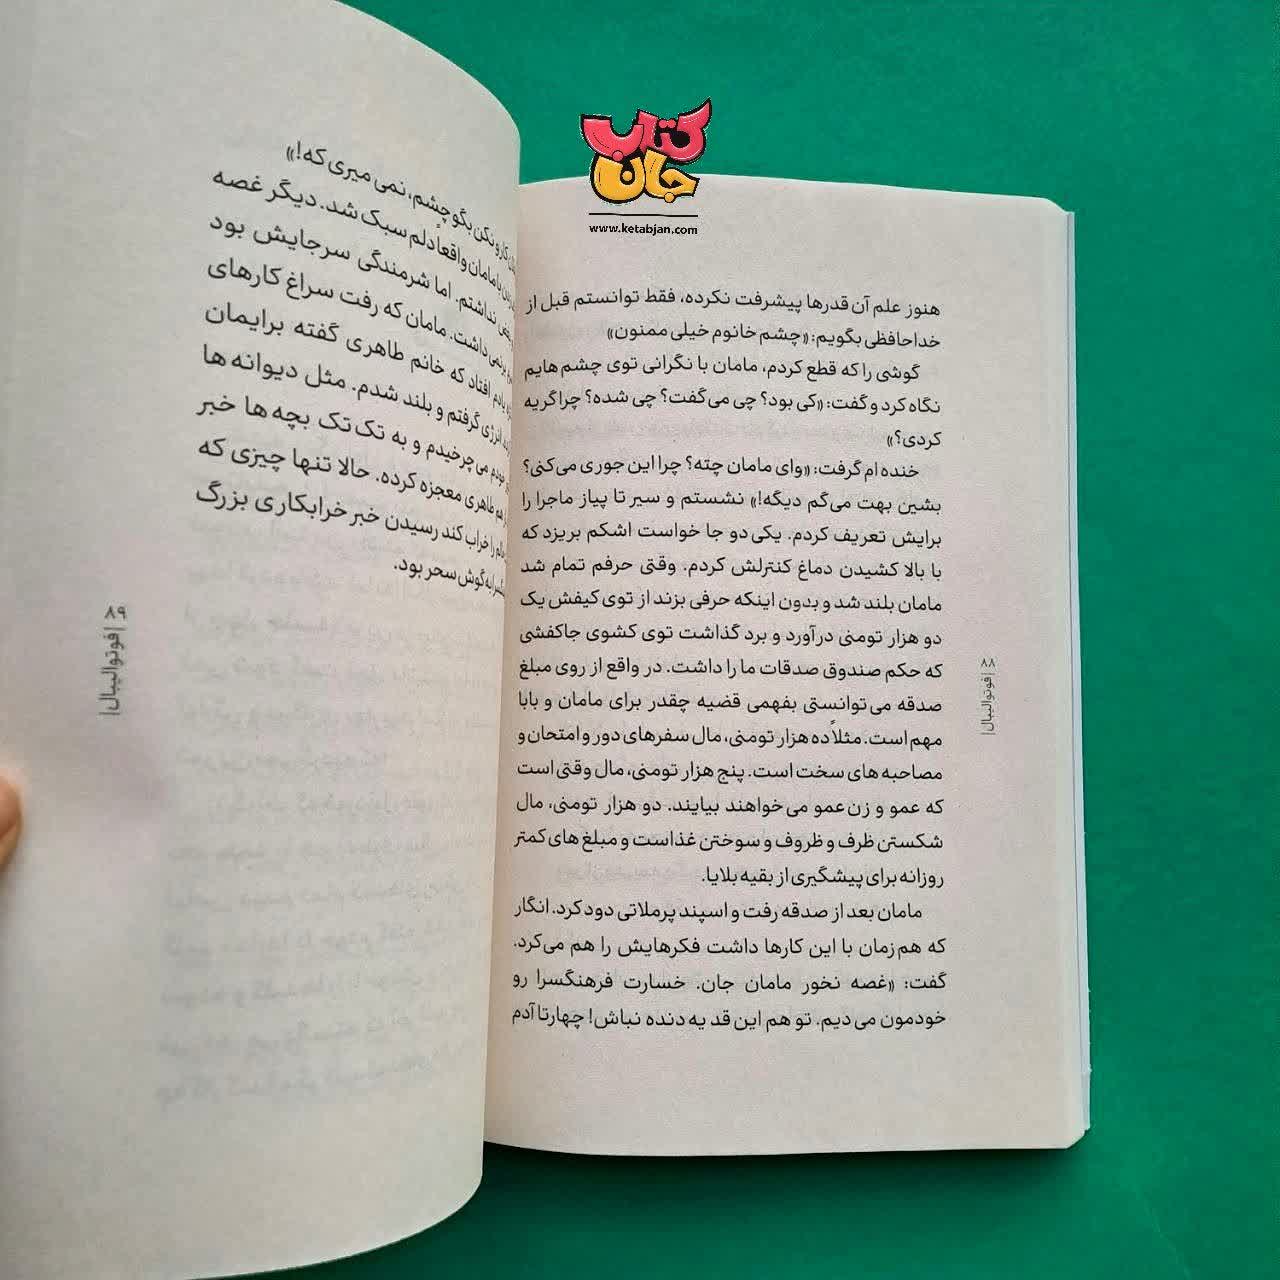 کتاب
جان
www.ketabjan.com
هنوز علم آن قدرها پیشرفت نکرده، فقط توانستم قبل از
خداحافظی بگویم: «چشم خانوم خیلی ممنون»
گوشی را که قطع کردم، مامان با نگرانی توی چشم هایم
نگاه کرد و گفت: «کی بود؟ چی می‌گفت؟ چی شده؟ چرا گریه
کردی؟»
خنده ام گرفت: «وای مامان چته؟ چرا این جوری می‌کنی؟
بشین بهت می‌گم دیگه!» نشستم و سیر تا پیاز ماجرا را
برایش تعریف کردم. یکی دو جا خواست اشکم بریزد که
با بالا کشیدن دماغ کنترلش کردم. وقتی حرفم تمام شد
مامان بلند شد و بدون اینکه حرفی بزند از توی کیفش یک
دو هزار تومنی درآورد و برد گذاشت توی کشوی جاکفشی
که حکم صندوق صدقات ما را داشت. در واقع از روی مبلغ
صدقه می‌توانستی بفهمی قضیه چقدر برای مامان و بابا
مهم است. مثلاً ده هزار تومنی، مال سفرهای دور و امتحان و
مصاحبه های سخت است. پنج هزار تومنی، مال وقتی است
که عمو و زن عمو می‌خواهند بیایند. دو هزار تومنی، مال
شکستن ظرف و ظروف و سوختن غذاست و مبلغ های کمتر
روزانه برای پیشگیری از بقیه بلایا.
مامان بعد از صدقه رفت و اسپند پرملاتی دود کرد. انگار
که هم زمان با این کارها داشت فکرهایش را هم می‌کرد.
گفت: «غصه نخور مامان جان. خسارت فرهنگسرا رو
خودمون می‌دیم. تو هم این قد یه دنده نباش! چهارتا آدم
۸۸ | فوتوالیبال |
کارو نکن بگو چشم، نمی میری که!»
با مامان واقعاً دلم سبک شد. دیگر غصه
نداشتم. اما شرمندگی سرجایش بود
برنمی داشت. مامان که رفت سراغ کارهای
یادم افتاد که خانم طاهری گفته برایمان
انرژی گرفتم و بلند شدم. مثل دیوانه ها
خودم می چرخیدم و به تک‌تک بچه ها خبر
طاهری معجزه کرده. حالا تنها چیزی که
را خراب کند رسیدن خبر خرابکاری بزرگ
به گوش سحر بود.
۸۹ | فوتوالیبال |